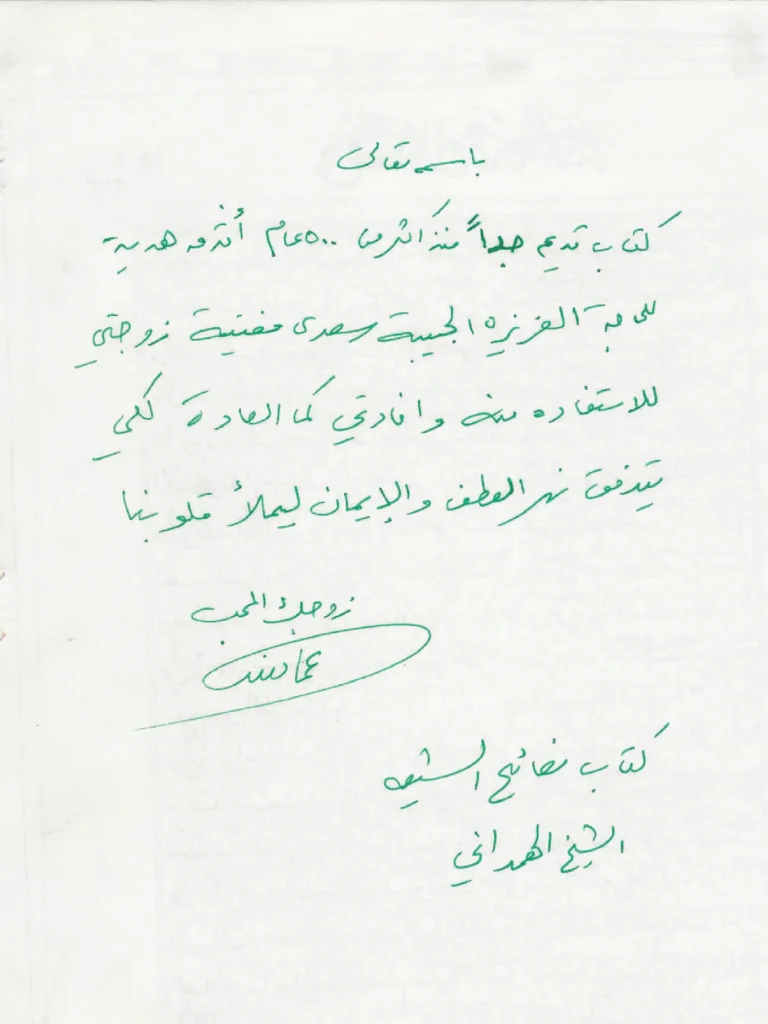 باسمه تعالى
كتاب قديم جداً منذ أكثر من ٥٠٠ عام أقدمه هدية
للحاجة العزيزه الحبيبة سعدى مغنية زوجتي
للاستفاده منه وافادتي كما العادة لكي
يتدفق نهر العطف والإيمان ليملأ قلوبنا
زوجك المحب
كتاب فضائح الشيعه
الشيخ الهمداني